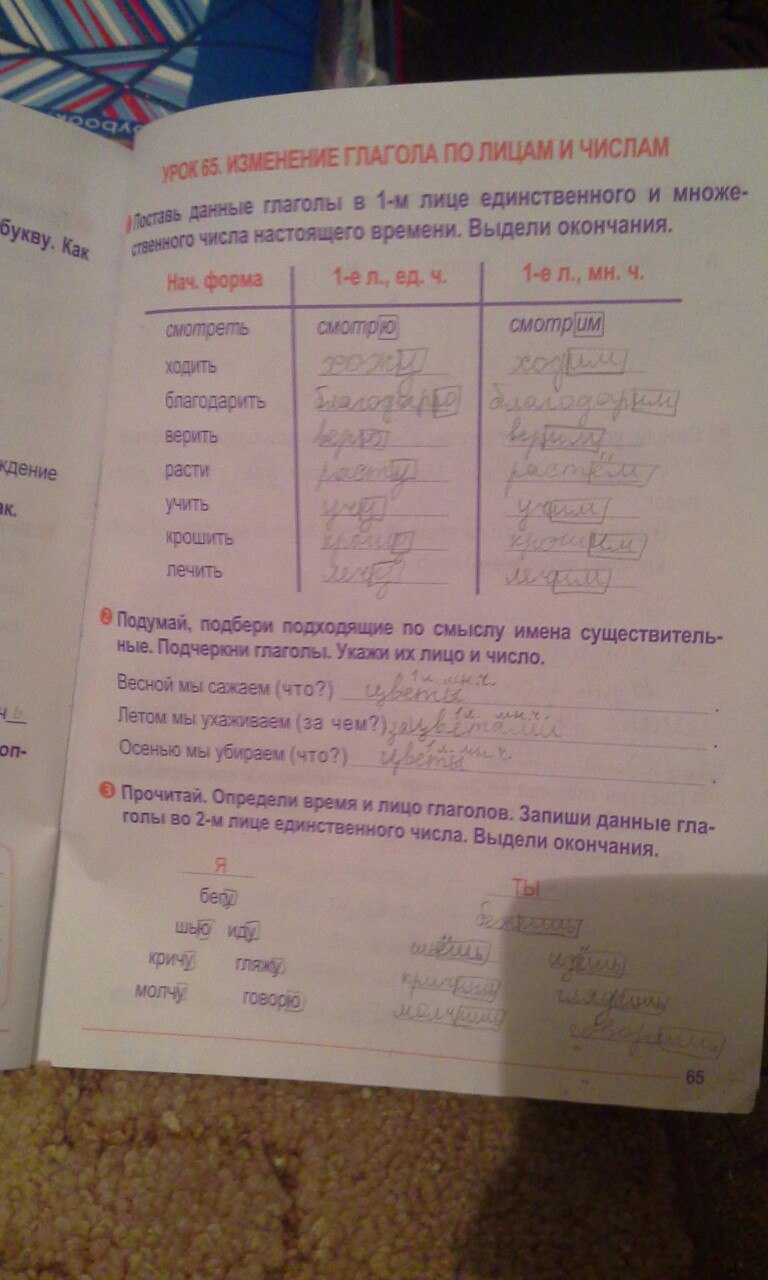 ybook
букву. Как
ждение
ак.
оп-
УРОК 65. ИЗМЕНЕНИЕ ГЛАГОЛА ПО ЛИЦАМ И ЧИСЛАМ
Поставь данные глаголы в 1-м лице единственного и множе-
ственного числа настоящего времени. Выдели окончания.
Нач. форма 1-е л., ед. ч. 1-е л., мн. ч.
смотреть смотрю смотрим
ходить хожу ходим
благодарить благодарю благодарим
верить верю верим
расти расту растём
учить учу учим
крошить крошу крошим
лечить лечу лечим
2 Подумай, подбери подходящие по смыслу имена существитель-
ные. Подчеркни глаголы. Укажи их лицо и число.
1л. мн.ч.
Весной мы сажаем (что?) цветы.
1л. мн.ч.
Летом мы ухаживаем (за чем?) за цветами.
1л. мн.ч.
Осенью мы убираем (что?) цветы.
3 Прочитай. Определи время и лицо глаголов. Запиши данные гла-
голы во 2-м лице единственного числа. Выдели окончания.
Я ТЫ
бегу бежишь
шью иду шьёшь идёшь
кричу гляжу кричишь глядишь
молчу говорю молчишь говоришь
65